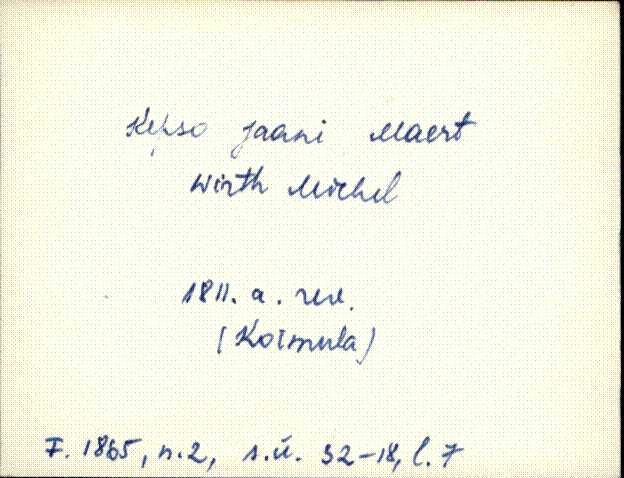 Kepso Jaani Maert
Wirth Michel
1811. a. rev.
(Koimula)
F. 1865, n.2, s.ü. 32-18, l. 7